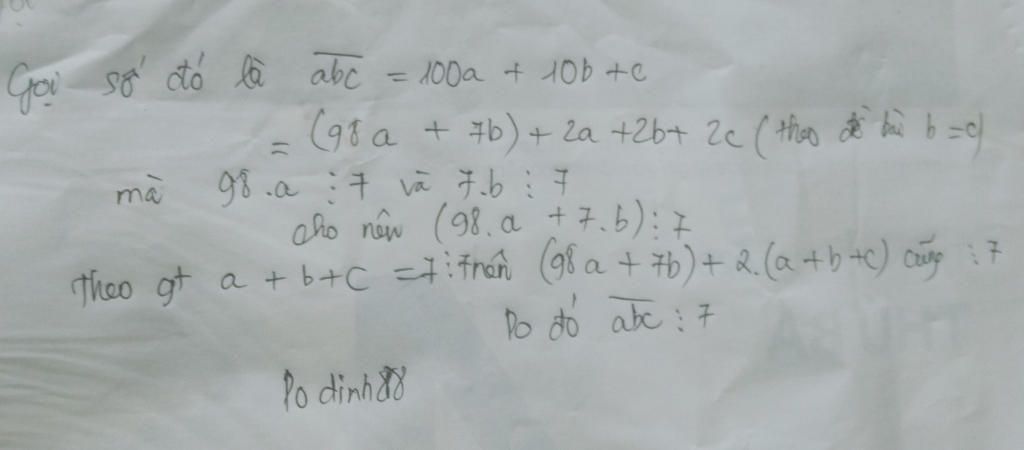 Gọi số đó là abc = 100a + 10b + c
= (98a + 7b) + 2a + 2b + 2c (theo đề bài b = c)
mà 98.a ⋮ 7 và 7.b ⋮ 7
cho nên (98.a + 7.b) ⋮ 7
Theo gt a + b + c = 7 ⋮ 7 nên (98a + 7b) + 2.(a + b + c) cũng ⋮ 7
Do đó abc ⋮ 7
Do dinh